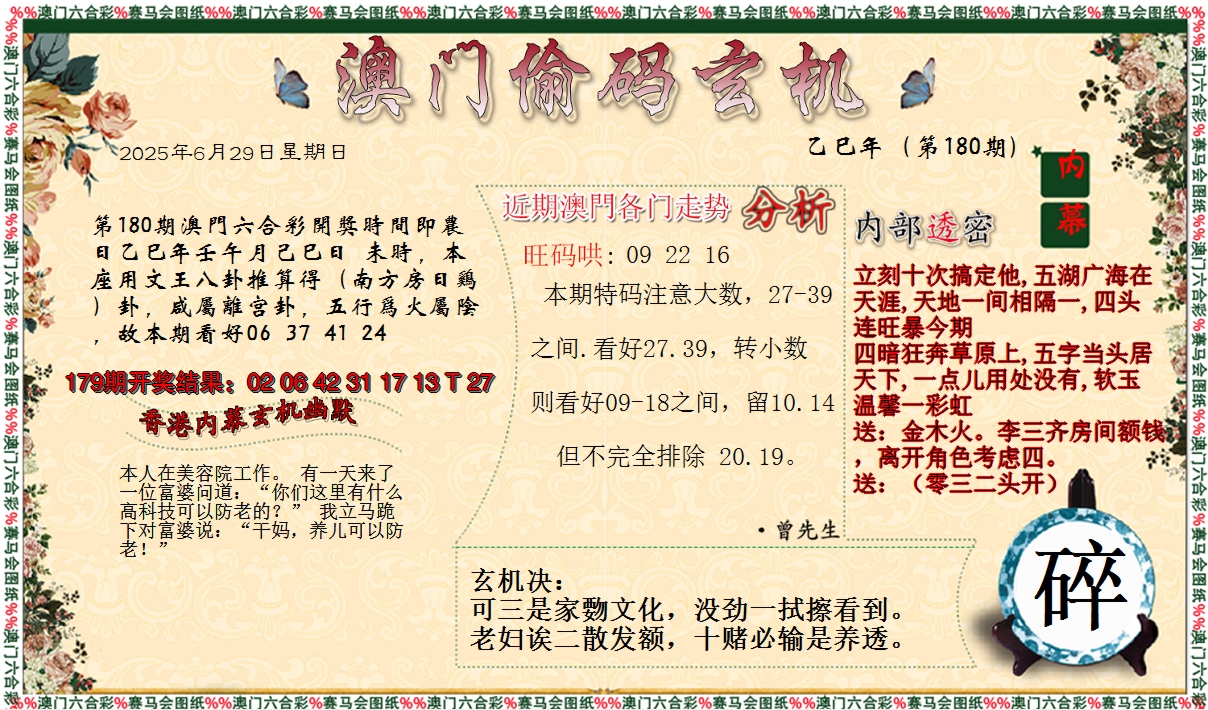 %%澳门六合彩%赛马会图纸%%澳门六合彩%赛马会图纸%%澳门六合彩%赛马会图纸%%澳门六合彩%赛马会图纸%%澳门六合彩%赛马会图纸%%澳门六合彩%赛马会图纸%%
澳门偷码玄机
2025年6月29日星期日
乙巳年 （第180期）
内
幕
第180期澳門六合彩開獎時間即農
日乙巳年壬午月己巳日 未時，本
座用文王八卦推算得（南方房日鷄
）卦，咸屬離宫卦，五行爲火屬陰
，故本期看好06 37 41 24
179期开奖结果：02 06 42 31 17 13 T 27
香港内幕玄机幽默
本人在美容院工作。 有一天来了
一位富婆问道：“你们这里有什么
高科技可以防老的？” 我立马跪
下对富婆说：“干妈，养儿可以防
老！”
近期澳門各门走势 分析
旺码哄: 09 22 16
本期特码注意大数，27-39
之间.看好27.39，转小数
则看好09-18之间，留10.14
但不完全排除 20.19。
·曾先生
内部透密
立刻十次搞定他,五湖广海在
天涯,天地一间相隔一,四头
连旺暴今期
四暗狂奔草原上,五字当头居
天下,一点儿用处没有,软玉
温馨一彩虹
送：金木火。李三齐房间额钱
，离开角色考虑四。
送：（零三二头开）
玄机决：
可三是家覅文化，没劲一拭擦看到。
老妇诶二散发额，十赌必输是养透。
碎
%%澳门六合彩%赛马会图纸%%澳门六合彩%赛马会图纸%%澳门六合彩%赛马会图纸%%澳门六合彩%赛马会图纸%%澳门六合彩%赛马会图纸%%澳门六合彩%赛马会图纸%%